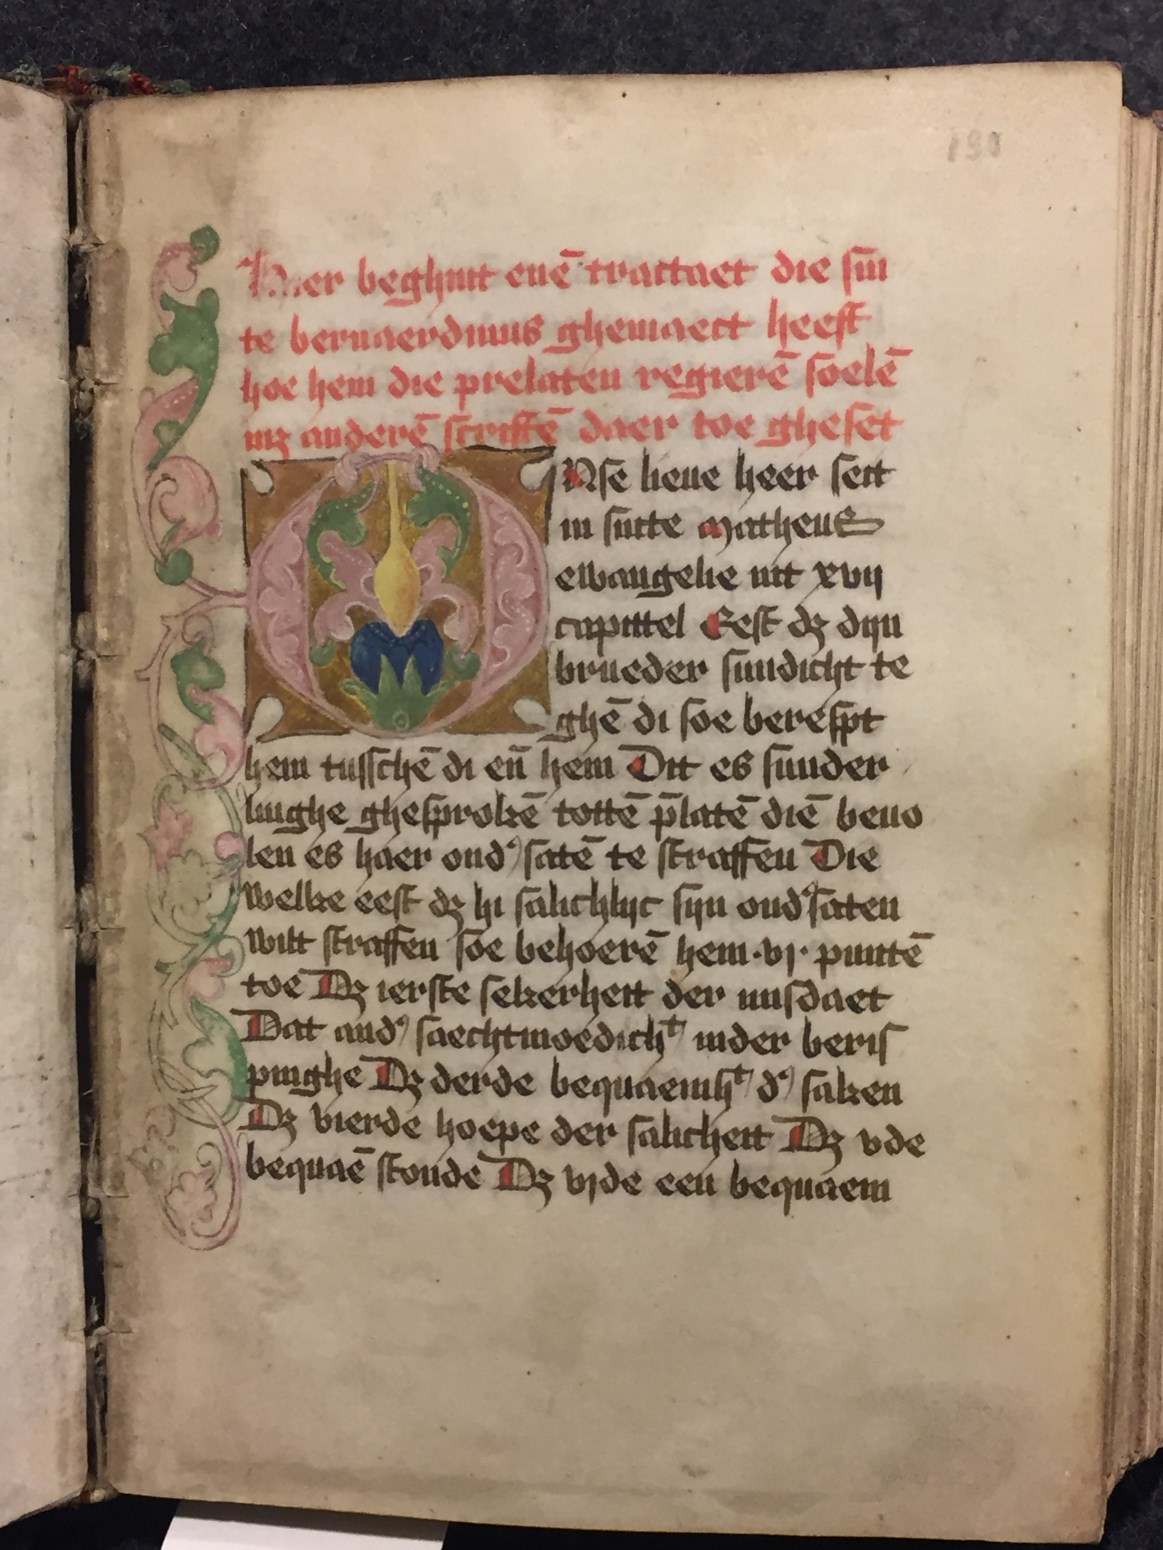 190
Hier beghint euē tractaet die sin
te bernaerdinus ghemaect heeft
hoe hem die prelaten regierē soelē
mꝫ anderē scriftē daer toe gheset
ONse lieue heer seit
in sinte Matheus
ewangelie int xvij
capittel Eest dꝫ dijn
brueder sundicht te
ghē di soe berespt
hem tusschē di eñ hem Dit es sunder
linghe ghesprokē tottē p̄latē diē beuo
len es haer ond᾽satē te straffen Die
welke eest dꝫ hi salichlijc sijn ond᾽saten
wilt straffen soe behoerē hem ·vj· puntē
toe Dꝫ ierste sekerheit der misdaet
Dat and᾽ saechtmoedichᵗ inder beris
pinghe Dꝫ derde bequaemhᵗ d᾽ saken
Dꝫ vierde hoepe der salicheit Dꝫ vde
bequaē stonde Dꝫ vjde een bequaem